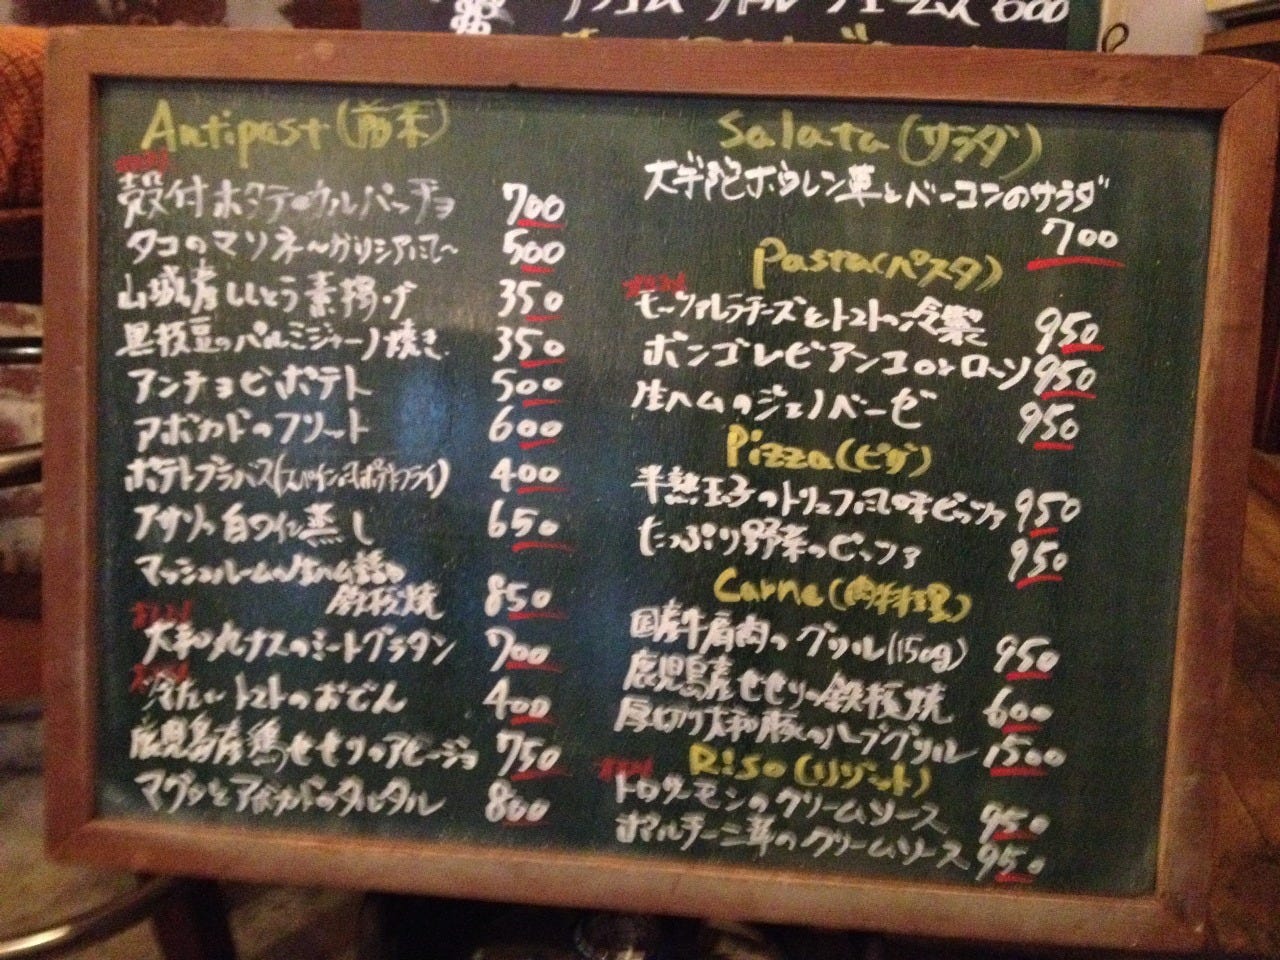 600
Antipast(前菜)
殻付ホタテのカルパッチョ 700
タコのマリネ〜ガリシア風〜 500
山城産ししとう素揚げ 350
黒枝豆のパルミジャーノ焼き 350
アンチョビポテト 500
アボカドのフリット 600
ポテトブラバス(スパイン風ポテトフライ) 400
アサリの白ワイン蒸し 650
マッシュルームの生ハム詰の
鉄板焼 850
オススメ
大和丸ナスのミートグラタン 700
オススメ
冷たいトマトのおでん 400
鹿児島産鶏のせせりのアヒージョ 750
マグロとアボカドのタルタル 800
Salata(サラダ)
ホウレン草とベーコンのサラダ
700
Pasta(パスタ)
オススメ
モッツァレラチーズとトマトの冷製 950
ボンゴレビアンコorロッソ 950
生ハムのジェノベーゼ 950
Pizza(ピザ)
半熟玉子のトリュフ風味ピッツァ 950
たっぷり野菜のピッツァ 950
Carne(肉料理)
国産牛肩肉のグリル(150g) 950
鹿児島産せせりの鉄板焼 600
厚切り大和豚のハーブグリル 1500
オススメ
Riso(リゾット)
トロサーモンのクリームソース 950
ポルチーニ茸のクリームソース 950